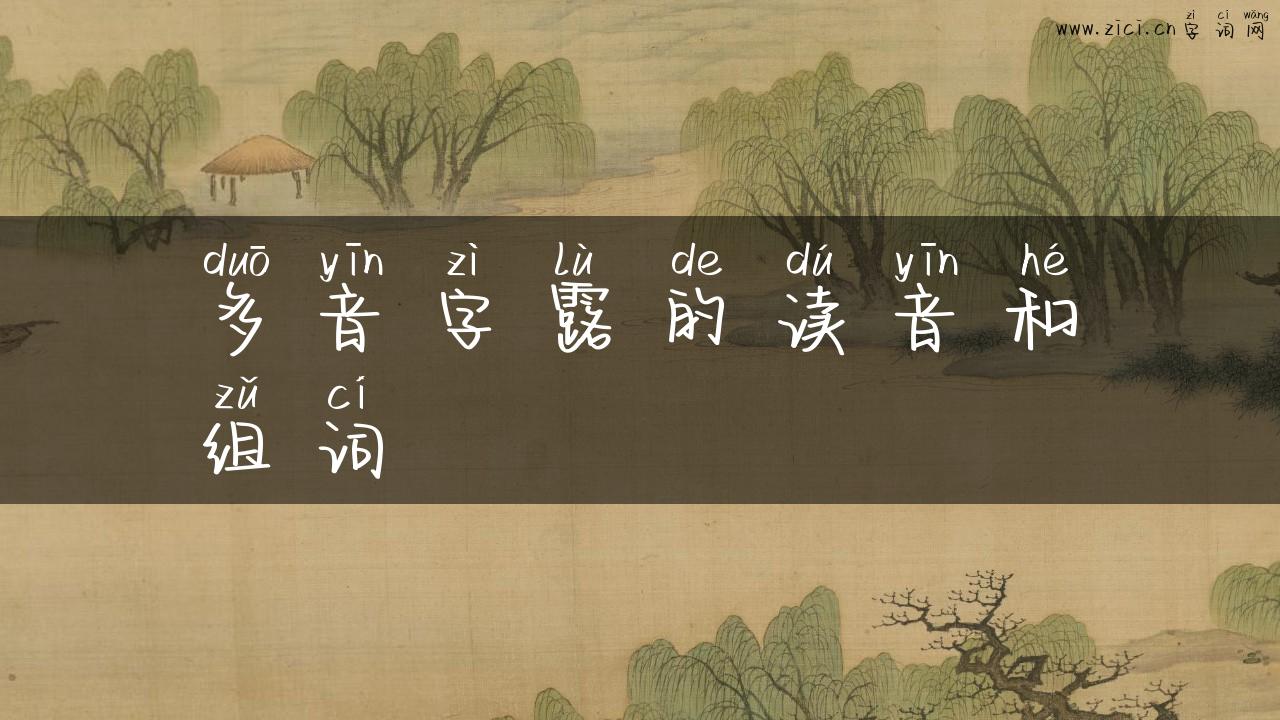 zì cí wǎng
www.zici.cn 字词网
duō yīn zì lù de dú yīn hé
多音字露的读音和
zǔ cí
组词